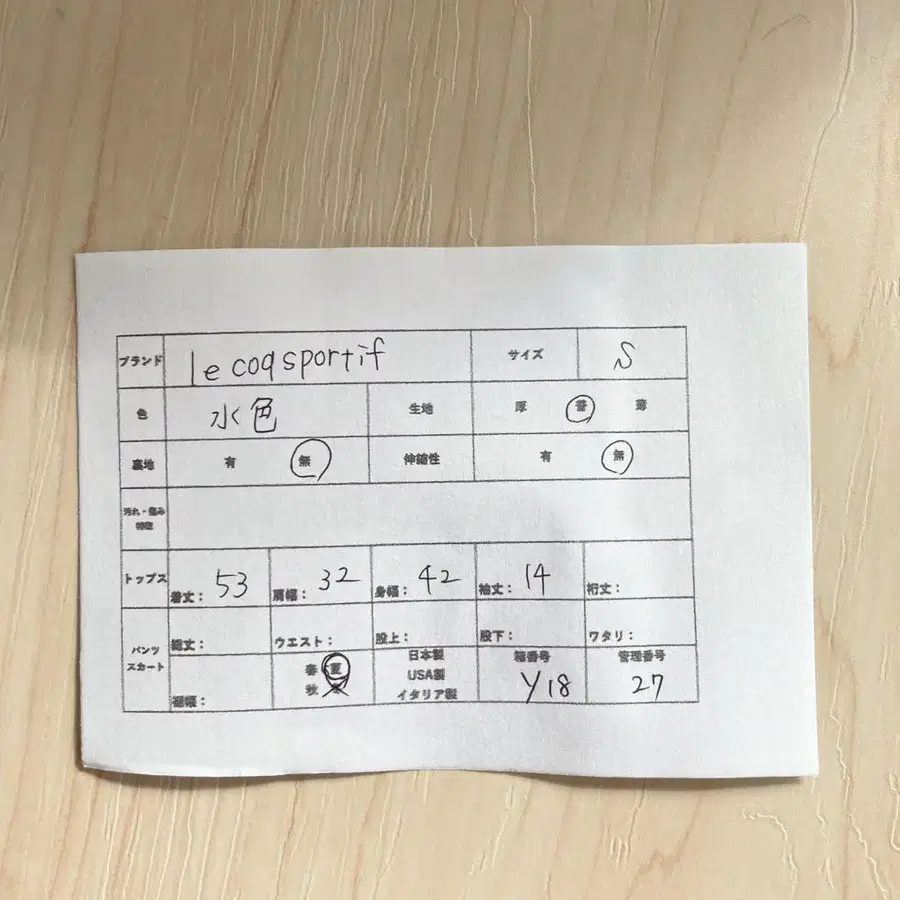 ブランド le coq sportif サイズ S
色 水色 生地 厚 普 薄
裏地 有 無 伸縮性 有 無
汚れ・傷み
トップス 着丈: 53 肩幅: 32 身幅: 42 袖丈: 14 裄丈:
パンツ
スカート
総丈: ウエスト: 股上: 股下: ワタリ:
裾幅:
春 夏
秋
日本製
USA製
イタリア製
箱番号
Y18
管理番号
27